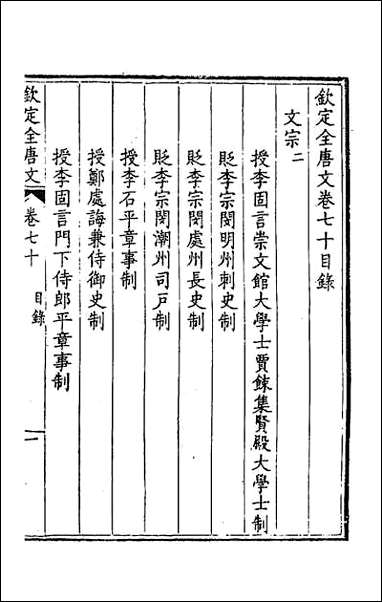 欽定全唐文卷七十目錄
文宗二
授李固言崇文館大學士賈餗集賢殿大學士制
貶李宗閔明州刺史制
貶李宗閔處州長史制
貶李宗閔潮州司戶制
授李石平章事制
授鄭處誨兼侍御史制
授李固言門下侍郎平章事制
欽定全唐文 卷七十 目錄 一